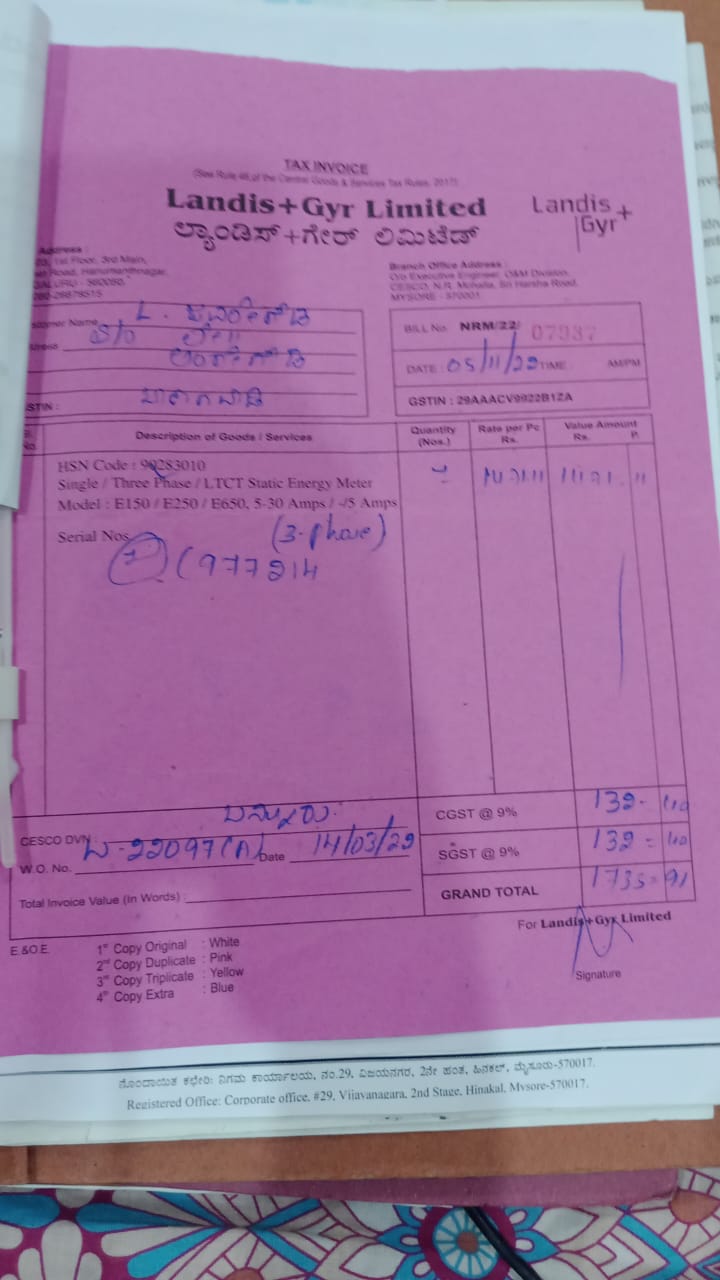 TAX INVOICE
(See Rule 46 of the Central Goods & Services Tax Rules, 2017)
Landis+Gyr Limited
ಲ್ಯಾಂಡಿಸ್+ಗೇರ್ ಲಿಮಿಟೆಡ್
Landis+
Gyr
Address :
1st Floor, 3rd Main,
Road, Hanumanthnagar,
Branch Office Address :
C/o Executive Engineer, O&M Division,
CESCO, N.R. Mohalla, Sri Harsha Road,
MYSORE - 570001
Name L.
S/o
BILL No. NRM/22/ 07937
DATE : 05/11/22 TIME : AM/PM
GSTIN : 29AAACV9922B1ZA
Description of Goods / Services
Quantity (Nos.)
Rate per Pc Rs.
Value Amount Rs. P.
HSN Code : 90283010
Single / Three Phase / LTCT Static Energy Meter
Model : E150 / E250 / E650, 5-30 Amps / -/5 Amps
Serial Nos.
(3-phase)
CESCO DVN
W.O. No. Date 14/03/22
Total Invoice Value (In Words) :
CGST @ 9% 132- 40
SGST @ 9% 132 = 40
GRAND TOTAL 1735=91
For Landis+Gyr Limited
Signature
E.&O.E.
1st Copy Original : White
2nd Copy Duplicate : Pink
3rd Copy Triplicate : Yellow
4th Copy Extra : Blue
ನೊಂದಾಯಿತ ಕಛೇರಿ: ನಿಗಮ ಕಾರ್ಯಾಲಯ, ನಂ.29, ವಿಜಯನಗರ, 2ನೇ ಹಂತ, ಹಿನಕಲ್, ಮೈಸೂರು-570017.
Registered Office: Corporate office, #29, Vijayanagara, 2nd Stage, Hinakal, Mysore-570017.